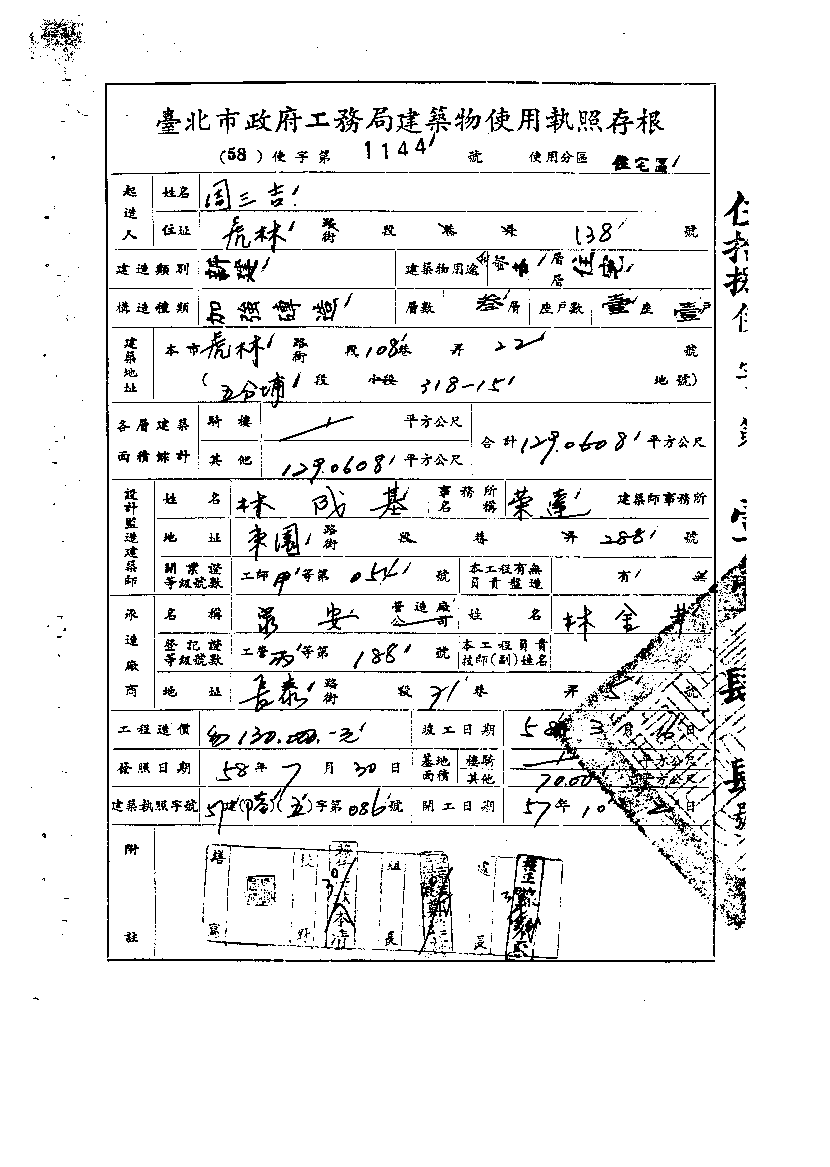 臺北市政府工務局建築物使用執照存根
(58)使字第 1144 號 使用分區 住宅區
起造人 姓名 周三吉
住址 虎林 路街 段 巷 弄 138 號
建造類別 新建 建築物用途 層層 住宅
構造種類 加強磚造 層數 叁層 座戶數 壹座 壹戶
建築地址 本市虎林 路街 段108巷 弄 22 號
(五分埔 段 小段 318-15 地號)
各層建築面積綜計 騎樓 平方公尺 合計129.0608平方公尺
其他 129.0608平方公尺
設計監造建築師 姓名 林 基 事務所名稱 榮達 建築師事務所
地址 東園 路街 段 巷 弄 288 號
開業證等級號數 工師甲等第 054 號 本工程有無負責監造 有 無
承造廠商 名稱 安 營造廠公司 姓名 林金
登記證等級號數 工營丙等第 188 號 本工程負責技師(副)姓名
地址 長泰 路街 段 31 巷 弄 5 號
工程造價 130.000.-元 竣工日期 58年3月16日
發照日期 58年7月30日 基地面積 騎樓 平方公尺
其他 70.00 平方公尺
建築執照字號 57建(甲壹)(五)字第086號 開工日期 57年10月2日
附註